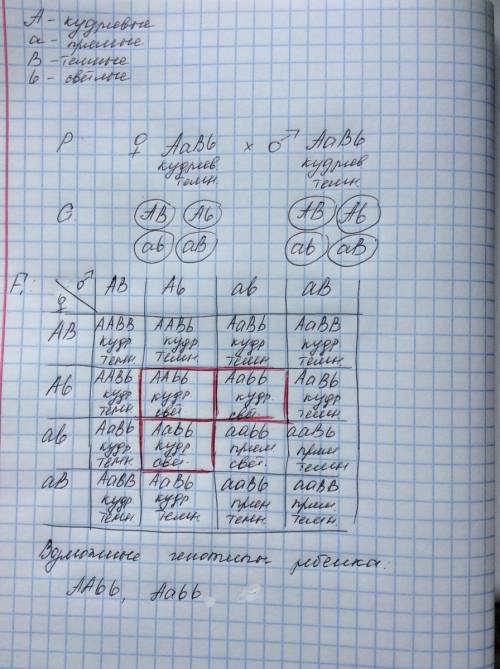 A - кудрявые
a - прямые
B - темные
b - светлые
P ♀ AaBb × ♂ AaBb
кудряв кудряв
темн. темн.
G AB Ab AB Ab
ab aB ab aB
F₁: ♂ AB Ab ab aB
♀
AB AABB AABb AaBb AaBB
кудр кудр кудр кудр
темн. темн. темн. темн.
Ab AABb AAbb Aabb AaBb
кудр кудр кудр кудр
темн. свет. свет. темн
ab AaBb Aabb aabb aaBb
кудр кудр прям прям
темн. свет. свет. темн
aB AaBB AaBb aaBb aaBB
кудр кудр. прям прям.
темн. темн. темн. темн.
Возможные генотипы ребенка:
AAbb, Aabb